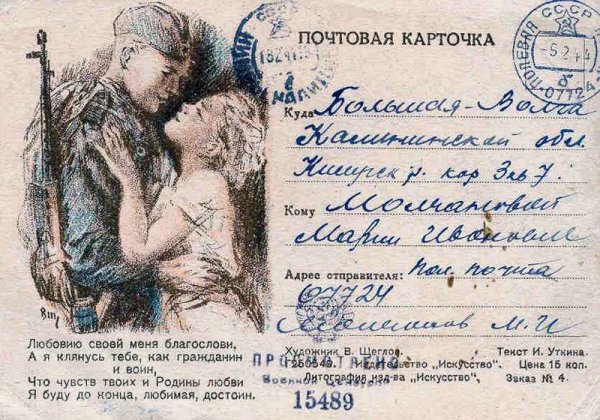 ПОЧТОВАЯ КАРТОЧКА
СССР
18 2 44
ПОЛЕВАЯ СССР
-5.2.44
б
07724
Куда Большая-Волга
Калининской обл.
Кимрск р.
Кому Молчановой
Марии Ивановне
Адрес отправителя: Пол. почта
07724
М. И
ПРОСМОТРЕНО
Военной Цензурой
15489
Вщ
Любовию своей меня благослови,
А я клянусь тебе, как гражданин
и воин,
Что чувств твоих и Родины любви
Я буду до конца, любимая, достоин.
Художник В. Щеглов. Текст И. Уткина.
Издательство „Искусство". Цена 15 коп.
Литография изд-ва „Искусство". Заказ № 4.